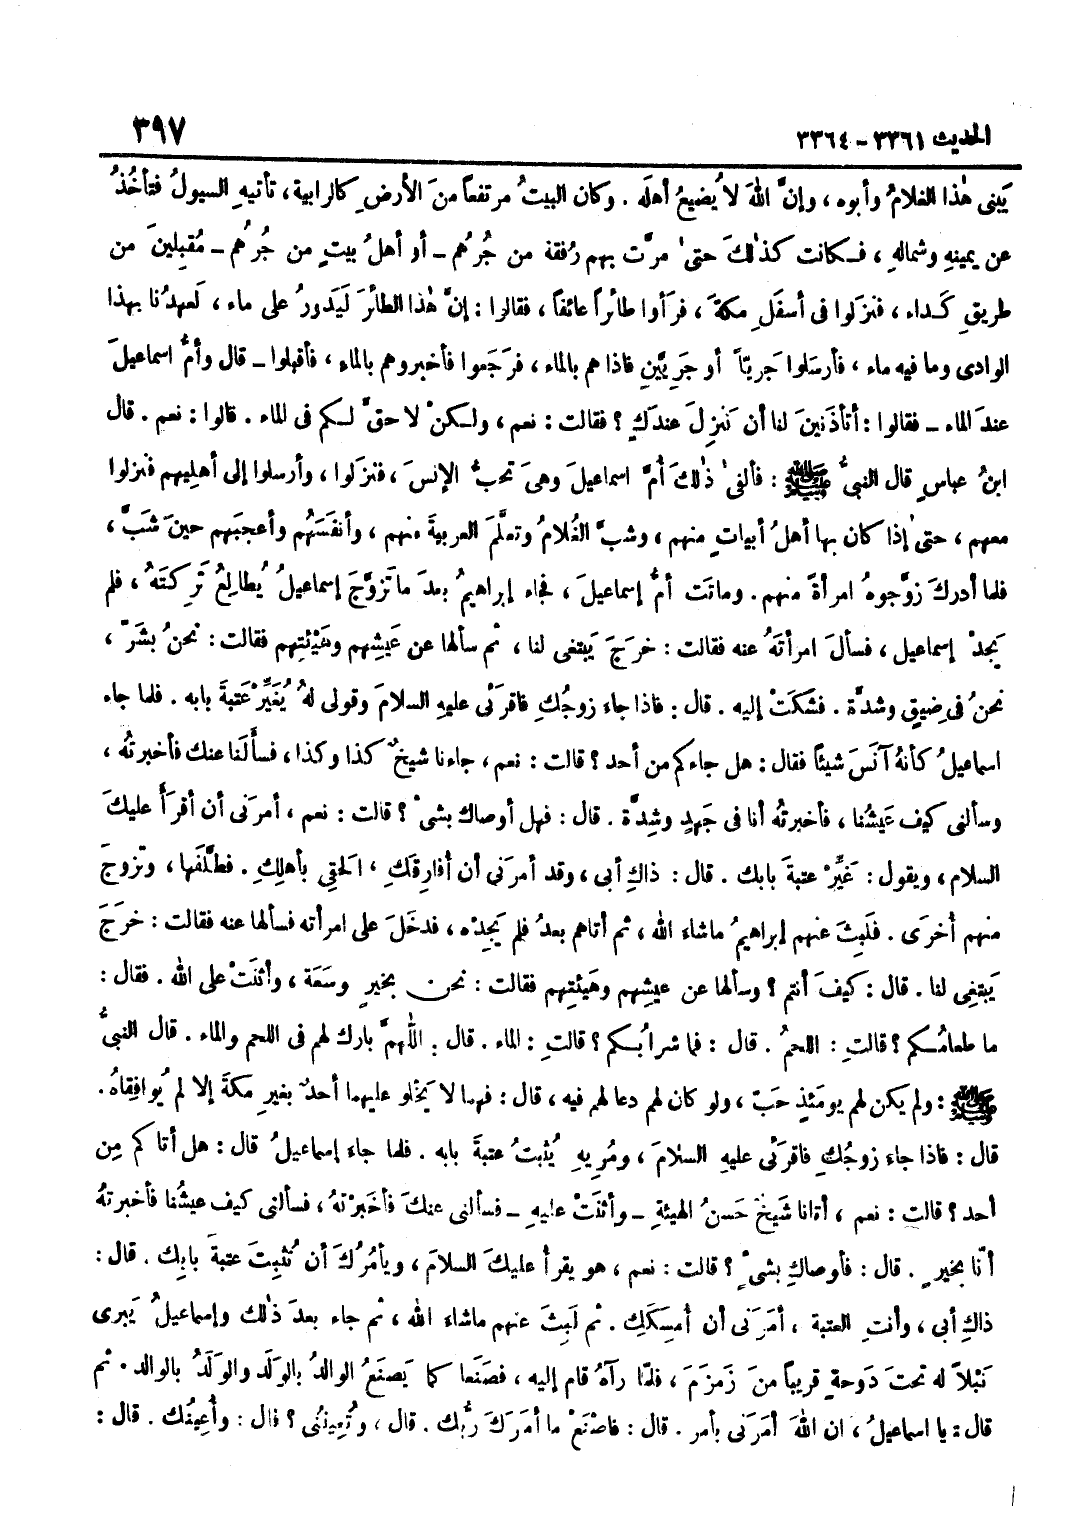 الحديث ٣٣٦١ - ٣٣٦٤
٣٩٧
يَبنى هٰذا الغلامُ وأبوه ، وإنَّ اللهَ لا يُضيعُ أهلَه . وكان البيتُ مرتفعاً منَ الأرضِ كالرابية ، تأتيهِ السيولُ فتأخُذُ
عن يمينهِ وشمالهِ ، فـكانت كذٰلكَ حتىٰ مرَّت بهم رُفقة من جُرهُم – أو أهلُ بيتٍ من جُرهُم – مُقبلينَ من
طريقِ كَداء ، فنزلوا فى أسفَلِ مكةَ ، فرأوا طائراً عائفاً ، فقالوا : إنَّ هٰذا الطائرَ لَيَدورُ على ماء ، لَعهدُنا بهذا
الوادى وما فيه ماء ، فأرسَلوا جَريّاً أو جَرِيَّينِ فاذا هم بالماء ، فرَجَعوا فأخبروهم بالماء ، فأقبلوا – قال وأمُّ اسماعيلَ
عندَ الماء – فقالوا : أتأذَنينَ لنا أن نَنزِلَ عندَكِ ؟ فقالت : نعم ، ولـكنْ لا حقَّ لـكم فى الماء . قالوا : نعم . قال
ابنُ عباسٍ قال النبىُّ ﷺ : فألفىٰ ذٰلكَ أمَّ اسماعيلَ وهىَ تحبُّ الإنسَ ، فنزَلوا ، وأرسلوا إلى أهليهم فنزلوا
معهم ، حتىٰ إذا كان بها أهلُ أبياتٍ منهم ، وشبَّ الغُلامُ وتعلَّمَ العربيةَ منهم ، وأنفَسَهُم وأعجبَهم حينَ شَبَّ ،
فلما أدركَ زوَّجوهُ امرأةً منهم . وماتَت أمُّ إسماعيلَ ، فجاء إبراهيمُ بعدَ ما تزوَّجَ إسماعيلُ يُطالِعُ تَرِكتَهُ ، فلم
يَجدْ إسماعيل ، فسألَ امرأتَهُ عنه فقالت : خرَجَ يَبتغى لنا ، ثم سألها عن عَيشِهم وهَيْئتِهم فقالت : نحنُ بشَرّ ،
نحنُ فى ضِيقٍ وشدَّة . فشكَتْ إليه . قال : فاذا جاء زوجُكِ فاقرَئى عليهِ السلامَ وقولى لهُ يُغَيِّرْ عَتبةَ بابه . فلما جاء
اسماعيلُ كأنهُ آنَسَ شيئاً فقال : هل جاءكم من أحد ؟ قالت : نعم ، جاءنا شيخٌ كذا وكذا ، فسأَلَنا عنك فأخبرتُه ،
وسألنى كيف عَيشُنا ، فأخبرتُه أنا فى جَهدٍ وشِدَّة . قال : فهل أوصاك بشىْ ؟ قالت : نعم ، أمرَنى أن أقرَأ عليكَ
السلام ، ويقول : غَيِّرْ عتبةَ بابك . قال : ذاكِ أبى ، وقد أمرَنى أن أفارِقَكِ ، الحقى بأهلِكِ . فطلَّقَها ، وتزوجَ
منهم أُخرَى . فلَبِثَ عنهم إبراهيمُ ماشاء الله ، ثم أتاهم بعدُ فلم يَجِدْه ، فدخَلَ على امرأته فسألها عنه فقالت : خرَجَ
يَبتغِى لنا . قال : كيفَ أنتم ؟ وسألها عن عيشِهم وهَيئتِهم فقالت : نحن بخيرٍ وسَعَة ، وأثنَتْ على الله . فقال :
ما طعامُـكم ؟ قالتِ : اللحمُ . قال : فما شرابُـكم ؟ قالتِ : الماء . قال . اللّٰهمَّ بارك لهم فى اللحم والماء . قال النبىُّ
ﷺ : ولم يكن لهم يومَئذٍ حَبّ ، ولو كان لهم دعا لهم فيه ، قال : فهما لا يَخلُو عليهما أحدٌ بغيرِ مكةَ إلا لم يُوافِقاهُ .
قال : فاذا جاء زوجُكِ فاقرَئى عليهِ السلامَ ، ومُريهِ يُثبتُ عتبةَ بابه . فلما جاء إسماعيلُ قال : هل أتاكم مِن
أحد ؟ قالت : نعم ، أتانا شَيخٌ حَسنُ الهيئةِ – وأثنَتْ عليهِ – فسألنى عنكَ فأخبَرْتهُ ، فسألنى كيف عيشُنا فأخبرتهُ
أنّا بخيرٍ . قال : فأوصاكِ بشىْءٍ ؟ قالت : نعم ، هو يقرأ عليكَ السلامَ ، ويأمُرُكَ أن تُثبِتَ عتبةَ بابِك . قال :
ذاكِ أبى ، وأنتِ العتبة ، أمرَنى أن أمسِكَكِ . ثم لَبِثَ عنهم ماشاء الله ، ثم جاء بعدَ ذٰلك وإسماعيلُ يَبرى
نَبْلاً له تحتَ دَوحةٍ قريباً منَ زَمزَمَ ، فلمّا رآهُ قام إليه ، فصَنَعا كما يَصنَعُ الوالدُ بالوَلَد والوَلَدُ بالوالد . ثم
قال : يا اسماعيلُ ، ان اللهَ أمرَنى بأمر . قال : فاصْنَعْ ما أمرَكَ ربُّك . قال ، وتُعِينُنى ؟ قال : وأُعِينُك . قال :